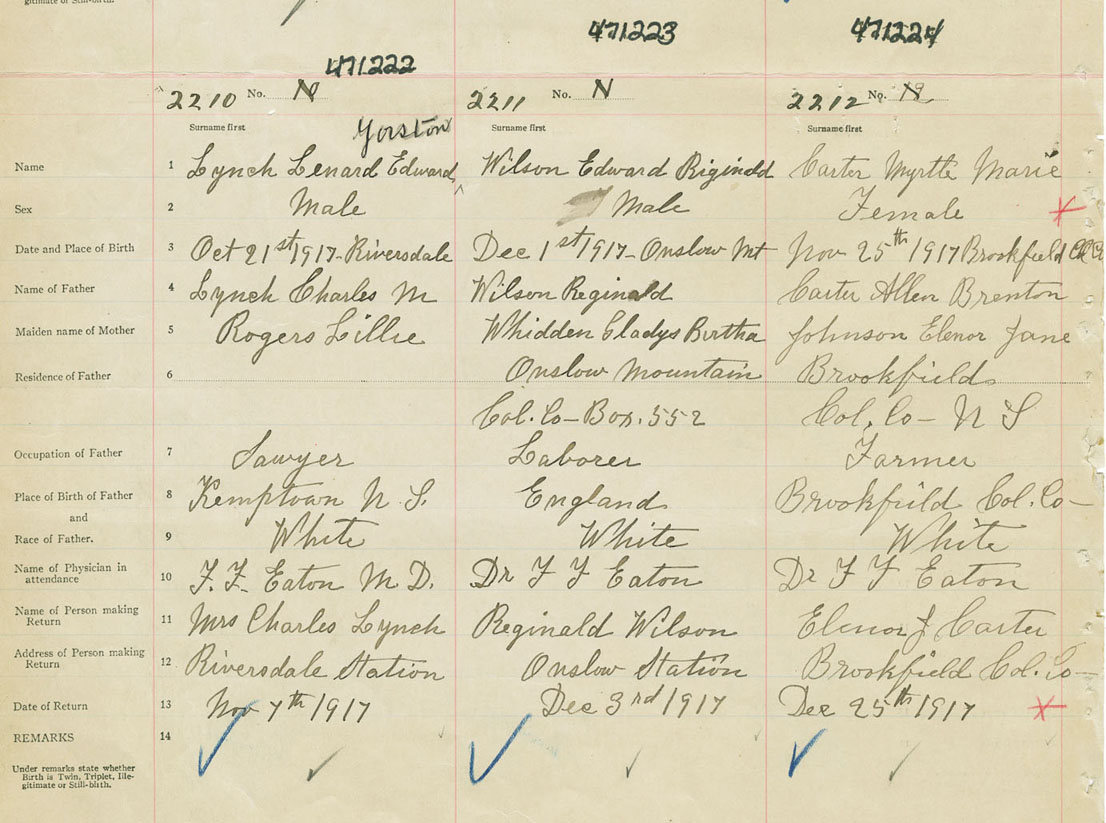 gitimate or Still-birth.
471222 471223 471224
2210 No. N 2211 No. N 2212 No.
Surname first Surname first Surname first
Yorston
Name 1 Lynch Lenard Edward Wilson Edward Riginald Carter Myrtle Marie
Sex 2 Male Male Female X
Date and Place of Birth 3 Oct 21st 1917-Riversdale Dec 1st 1917-Onslow Mt Nov 25th 1917 Brookfield
Name of Father 4 Lynch Charles M Wilson Reginald Carter Allen Brenton
Maiden name of Mother 5 Rogers Lillie Whidden Gladys Birtha Johnson Elenor Jane
Residence of Father 6 Onslow Mountain Brookfield
Col. Co-Box. 552 Col. Co- N S
Occupation of Father 7 Sawyer Laborer Farmer
Place of Birth of Father 8 Kemptown N. S. England Brookfield Col. Co-
and
Race of Father. 9 White White White
Name of Physician in
attendance 10 F. F. Eaton M. D. Dr F F Eaton Dr F F Eaton
Name of Person making
Return 11 Mrs Charles Lynch Reginald Wilson Elenor J Carter
Address of Person making
Return 12 Riversdale Station Onslow Station Brookfield Col. Co-
Date of Return 13 Nov 7th 1917 Dec 3rd 1917 Dec 25th 1917 X
REMARKS 14
Under remarks state whether
Birth is Twin, Triplet, Ille-
gitimate or Still-birth.